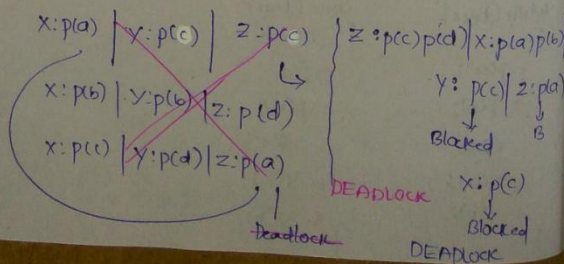 X:p(a) | Y:p(c) | Z:p(c)
X:p(b) | Y:p(b) | Z:p(d)
X:p(c) | Y:p(d) | Z:p(a)
Deadlock
Z:p(c)p(d) | X:p(a)p(b)
Y: p(c) | Z:p(a)
Blocked B
DEADLOCK
X: p(c)
Blocked
DEADLOCK